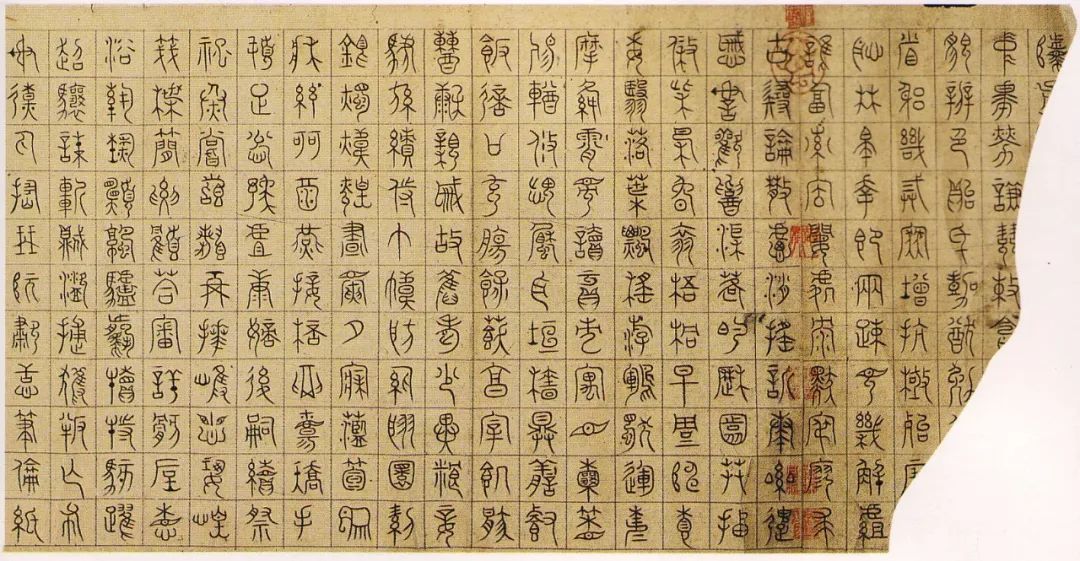 中庸勞謙謹敕聆
貌辨色貽厥嘉猷勉
省躬譏誡寵增抗極殆辱
恥林皋幸即兩疏見機解組
誰逼索居閑處沉默寂寥求
古尋論散慮逍遙欣奏累遣
慼謝歡招渠荷的歷園莽抽
條枇杷晚翠梧桐早凋陳根
委翳落葉飄颻游鵾獨運凌
摩絳霄耽讀玩市寓目囊箱
易輶攸畏屬耳垣牆具膳餐
飯適口充腸飽飫烹宰飢厭
糟糠親戚故舊老少異糧妾
御績紡侍巾帷房紈扇圓潔
銀燭煒煌晝眠夕寐藍筍象
床弦歌酒宴接杯舉觴矯手
頓足悅豫且康嫡後嗣續祭
祀烝嘗稽顙再拜悚懼恐惶
箋牒簡要顧答審詳骸垢想
浴執熱願涼驢騾犢特駭躍
超驤誅斬賊盜捕獲叛亡布
射僚丸嵇琴阮嘯恬筆倫紙